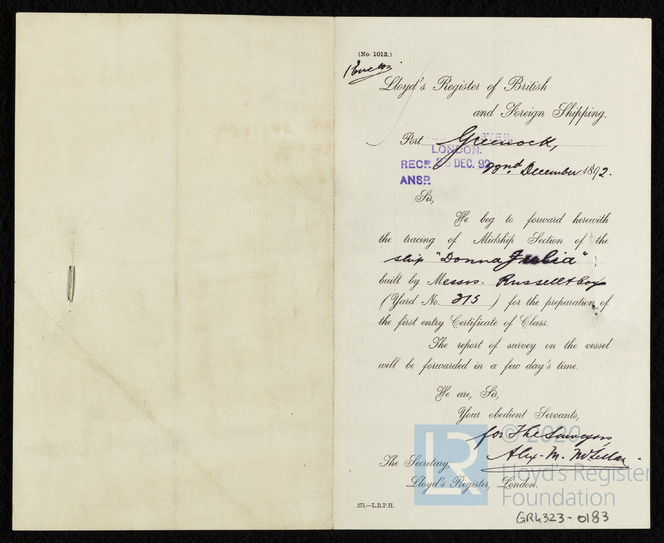 (No. 1012.)
1 Enclo
Lloyd's Register of British
and Foreign Shipping.
Port Greenock,
LONDON.
RECR. DEC. 92
22nd December 1892.
ANSR.
Sir,
We beg to forward herewith
the tracing of Midship Section of the
ship "Donna Julia"
built by Messrs. Russell & Coy
(Yard No. 315) for the preparation of
the first entry Certificate of Class.
The report of survey on the vessel
will be forwarded in a few day's time.
We are, Sir,
Your obedient Servants,
for The Surveyors
Alex. M.
The Secretary,
Lloyd's Register, London.
LR © 2020
Lloyd's Register
Foundation
251.—L.B.P.H.
GR4323-0183